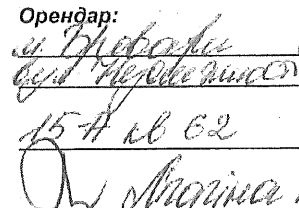 Орендар:
м Бровари
вул Незалежност
15-А кв 62